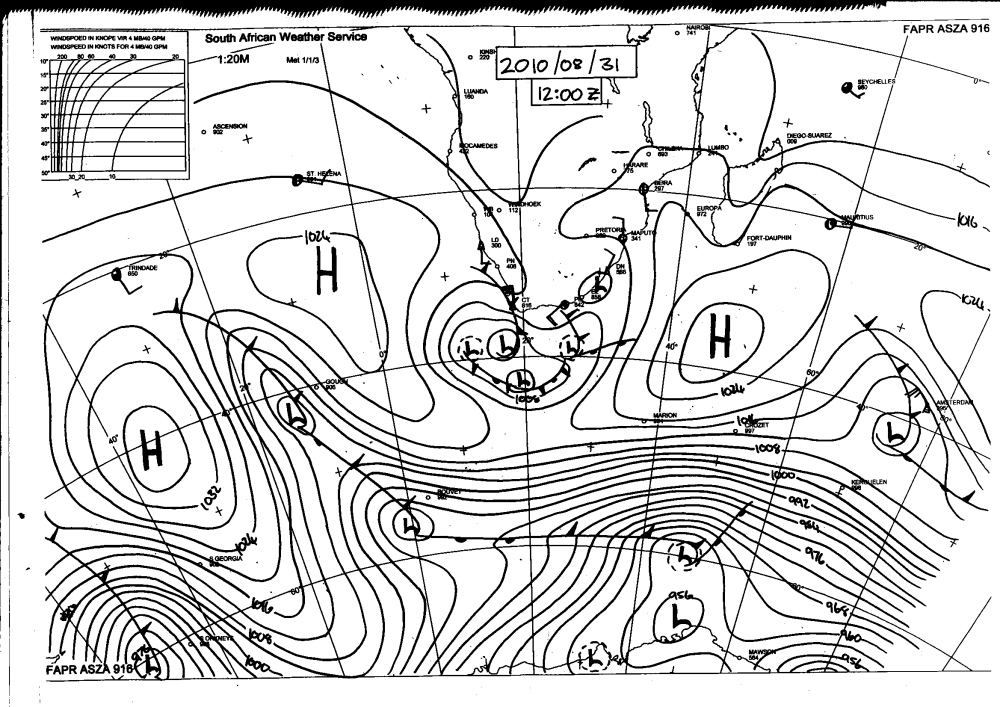 FAPR ASZA 916
WINDSPOED IN KNOPE VIR 4 MB/40 GPM
WINDSPEED IN KNOTS FOR 4 MB/40 GPM
200 80 60 40 30 20
10°
15°
20°
25°
30°
35°
40°
45°
50°
30 20 10
South African Weather Service
1:20M Met 1/1/3
2010/08/31
12:00 Z
NAIROBI
741
220
SEYCHELLES
980
LUANDA
160
0°
ASCENSION
902
DIEGO-SUAREZ
009
MOCAMEDES
LUMBO
HARARE
ST. HELENA
BEIRA
297
WINDHOEK
112
EUROPA
972
MAURITIUS
1016
PRETORIA
MAPUTO
341
FORT-DAUPHIN
197
20°
1024
H
LD
300
PN
406
DN
TRINDADE
650
20°
L
CT
816
PE
842
1024
H
L
L
L
20°
L
1008
0°
40°
60°
1024
GOUGH
906
20°
40°
L
40°
H
40°
AMSTERDAM
60°
L
MARION
1016
CROZET
997
1008
1032
1000
KERGUELEN
998
BOUVET
992
992
L
984
976
1024
S.GEORGIA
L
60°
1016
956
L
968
1008
960
S.ORKNEYS
1000
976
L
L
MAWSON
564
956
FAPR ASZA 916